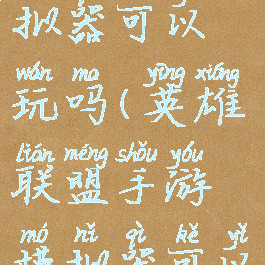 拟器可以
wán ma yīng xióng
玩吗(英雄
lián méng shǒu yóu
联盟手游
mó nǐ qì kě yǐ
模拟器可以